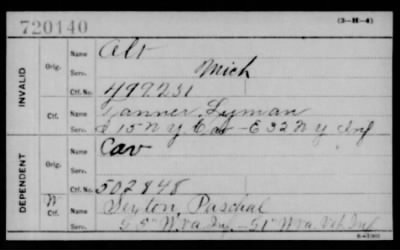 720140
(3—H—4)
INVALID
Orig.
Name Alv
Serv. Mich
Ctf. No. 497231
Ctf.
Name Tanner, Lyman
Serv. E 15 N Y Cav - E 32 N Y Inf
DEPENDENT
Orig.
Name Cav
Serv.
Ctf. No. 502848
W
Ctf.
Name Sexton, Paschal
Serv. 5 5" W. Va. Inf — 5 1" W Va. Vet Inf